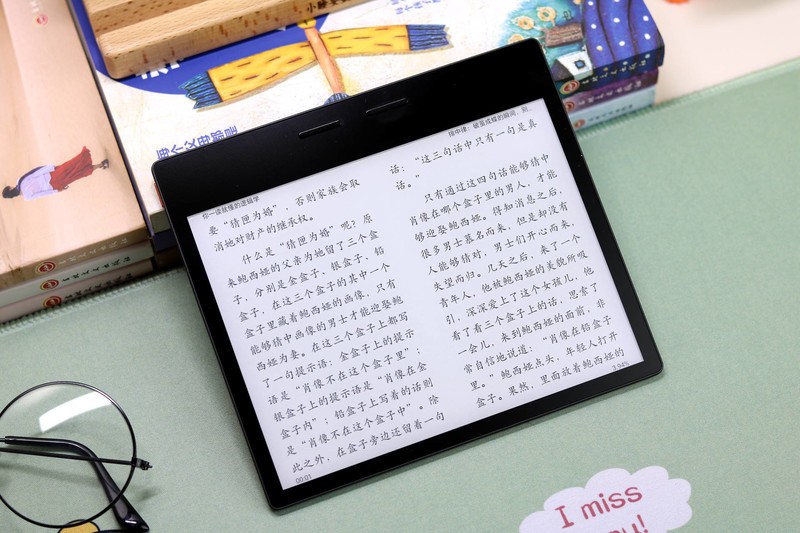 你一读就懂的逻辑学
要“猜匣为婚”，否则家族会取
消她对财产的继承权。
什么是“猜匣为婚”呢？原
来鲍西娅的父亲为她留了三个盒
子，分别是金盒子、银盒子、铅
盒子，在这三个盒子的其中一个
盒子里藏着鲍西娅的画像，只有
能够猜中画像的男士才能迎娶鲍
西娅为妻。在这三个盒子上都写
了一句提示语：金盒子上的提示
语是“肖像不在这个盒子里”；
银盒子上的提示语是“肖像在金
盒子内”；铅盒子上写着的话则
是“肖像不在这个盒子中”。除
此之外，在盒子旁边还留着一句
00:01
排中律：破茧成蝶的瞬间，
话：“这三句话中只有一句是真
话。”
只有通过这四句话能够猜中
肖像在哪个盒子里的男人，才能
够迎娶鲍西娅。得知消息之后，
很多男士慕名而来，但是却没有
人能够猜对，男士们开心而来，
失望而归。几天之后，来了一个
青年人，他被鲍西娅的美貌所吸
引，深深爱上了这个女孩儿，他
看了有三个盒子上的话，思索了
一会儿，来到鲍西娅的面前，非
常自信地说道：“肖像在铅盒子
里。”鲍西娅点头，年轻人打开
盒子。果然，里面放着鲍西娅的
3.94%
I miss